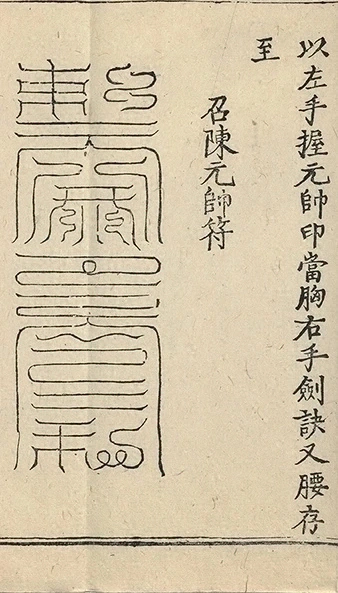 以左手握元帥印當胸右手劍訣又腰存
至
召陳元帥符